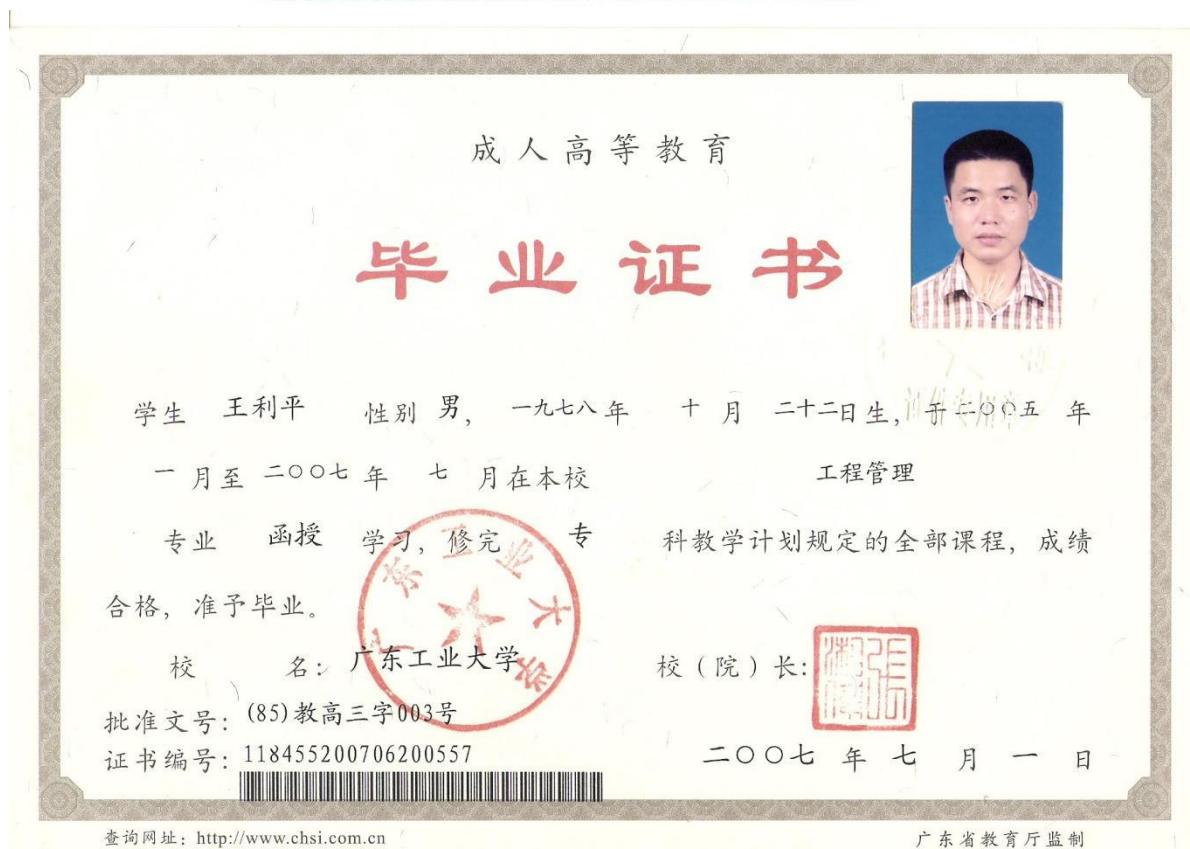 成人高等教育
毕业证书
学生 王利平 性别 男, 一九七八年 十月 二十二日生, 于二〇〇五年
一月至二〇〇七年 七月在本校 工程管理
专业 函授 学习, 修完 专 科教学计划规定的全部课程, 成绩
合格, 准予毕业。
广东工业大学
校 名: 广东工业大学 校(院)长:
批准文号: (85)教高三字003号
证书编号: 118455200706200557 二〇〇七年七月一日
查询网址: http://www.chsi.com.cn 广东省教育厅监制